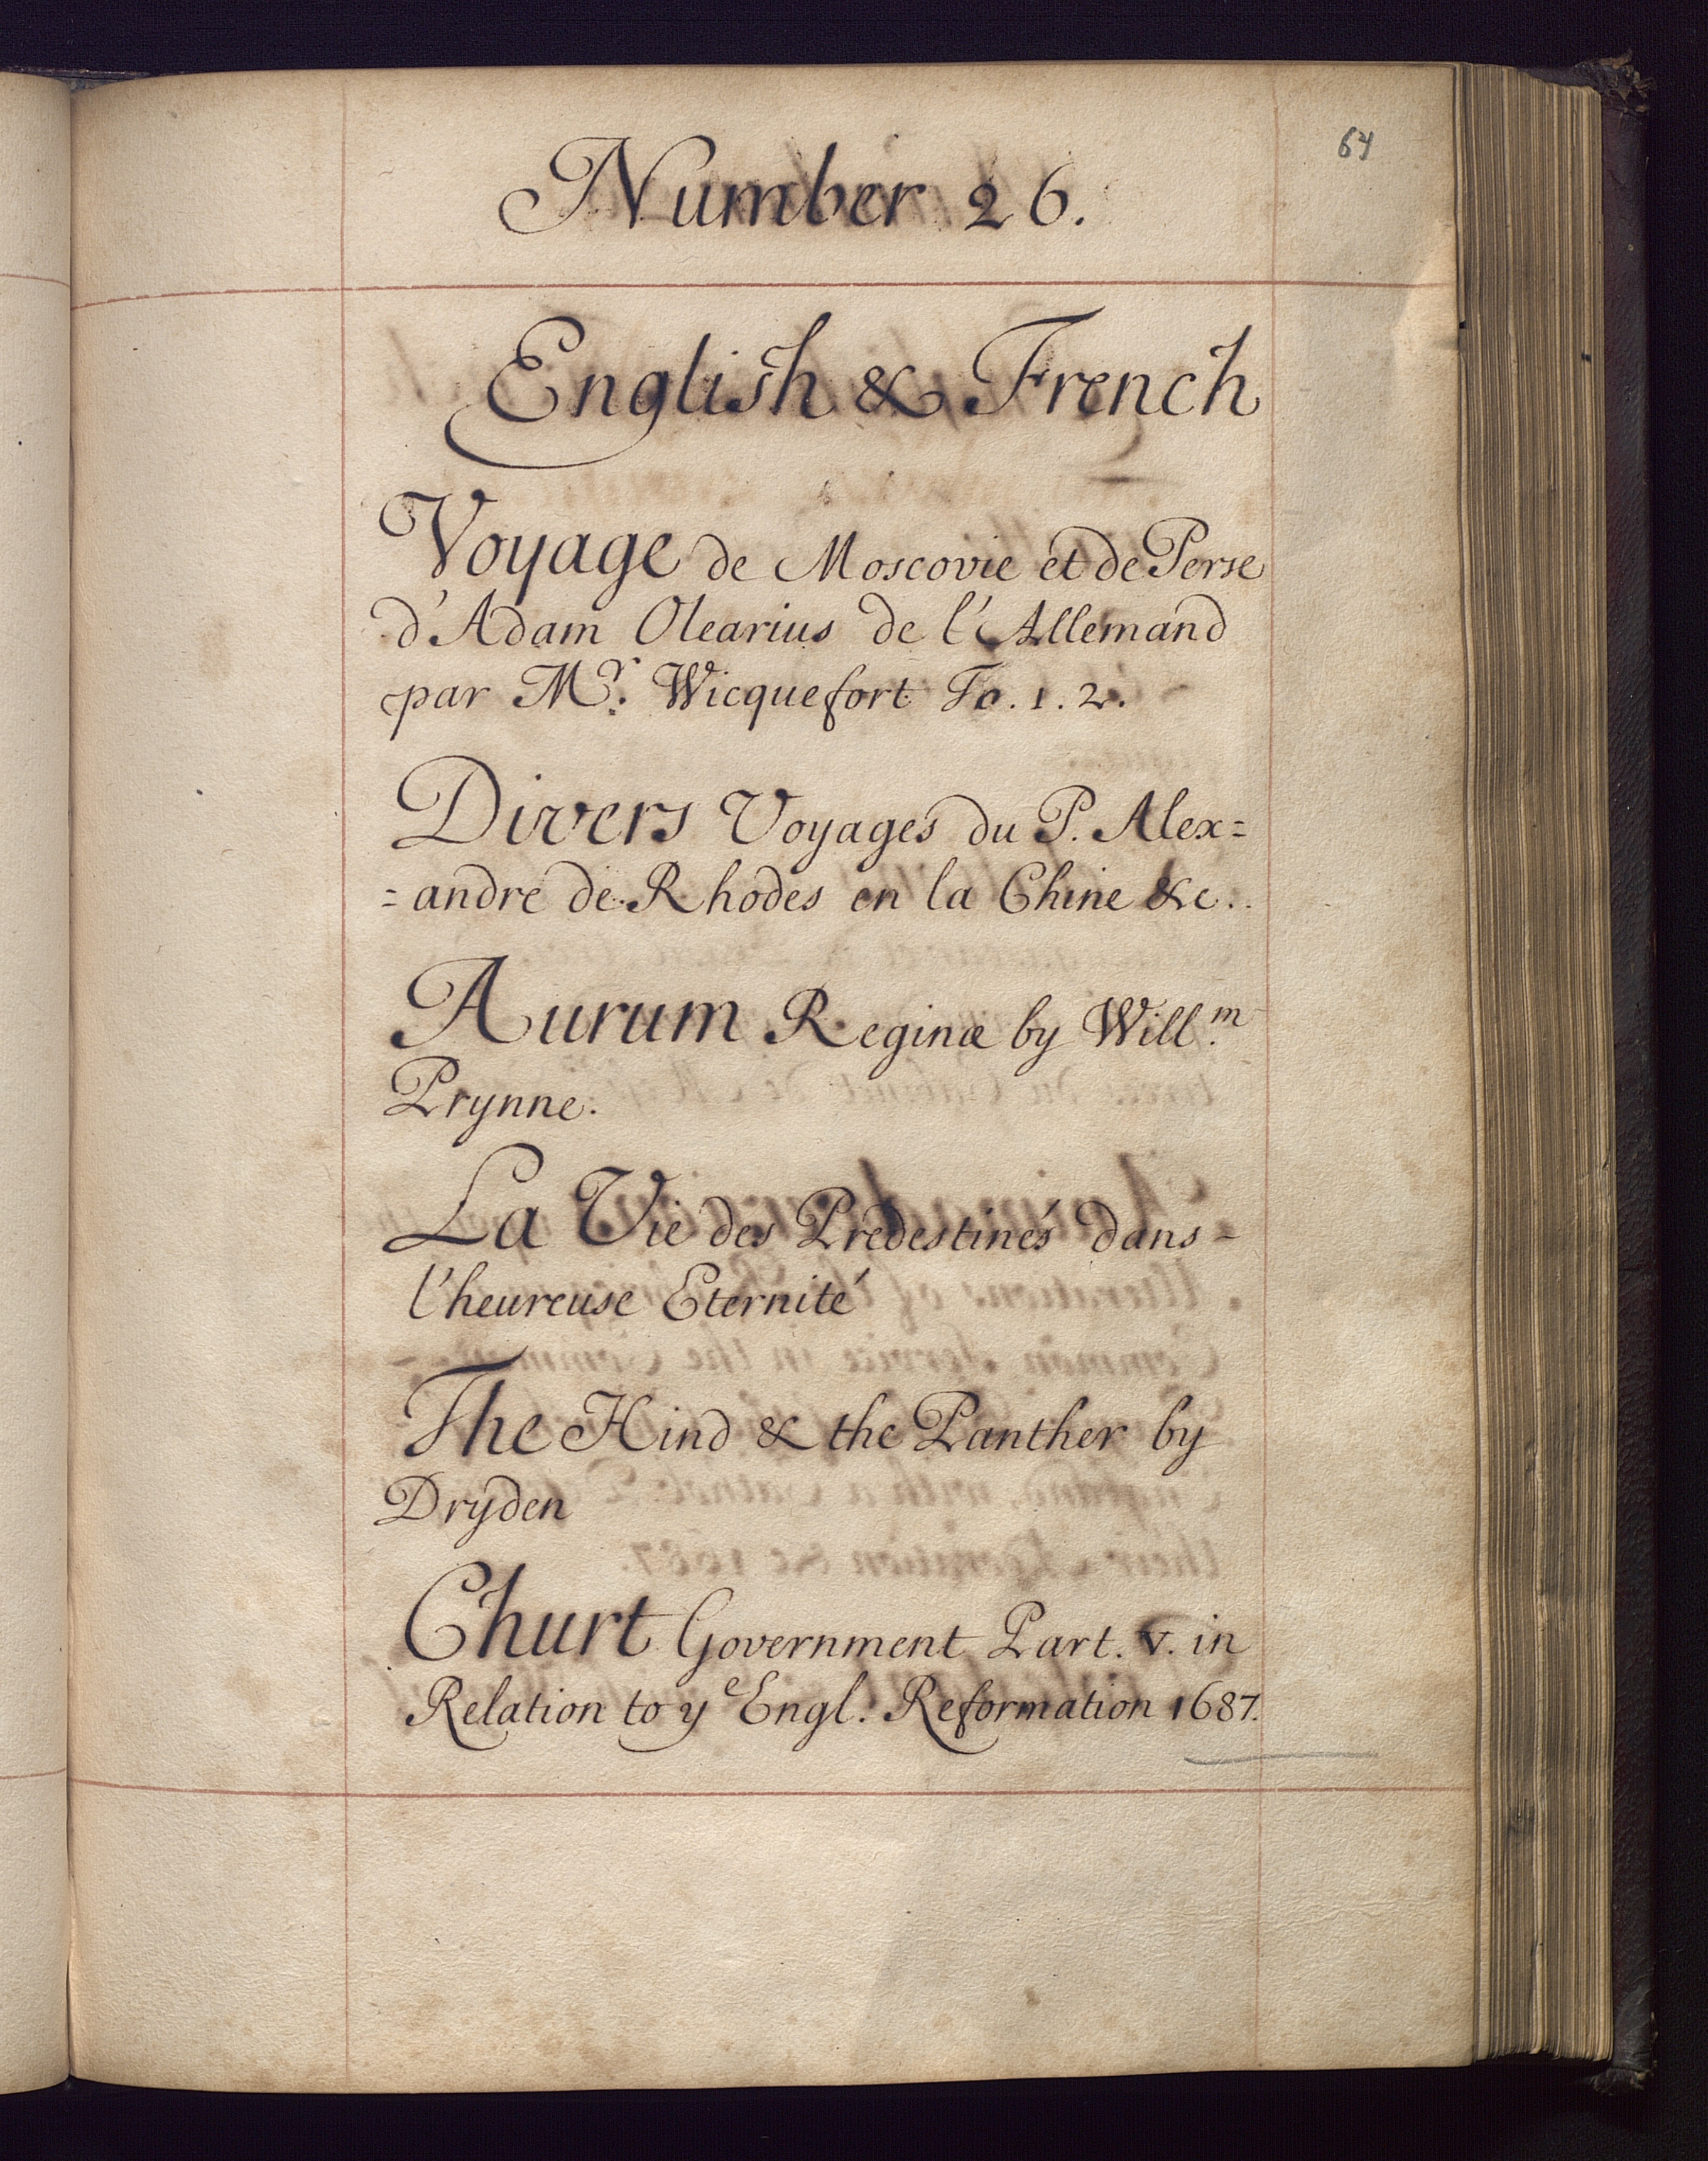 64
Number 26.
English & French
Voyage de Moscovie et de Perse
d'Adam Olearius de l'Allemand
par Mr. Wicquefort To. 1. 2.
Divers Voyages du P. Alex=
=andre de Rhodes en la Chine &c.
Aurum Reginæ by Will.m
Prynne.
La Vie des Predestinés dans=
l'heureuse Eternité
The Hind & the Panther by
Dryden
Churt Government Part. V. in
Relation to ye Engl. Reformation 1687.